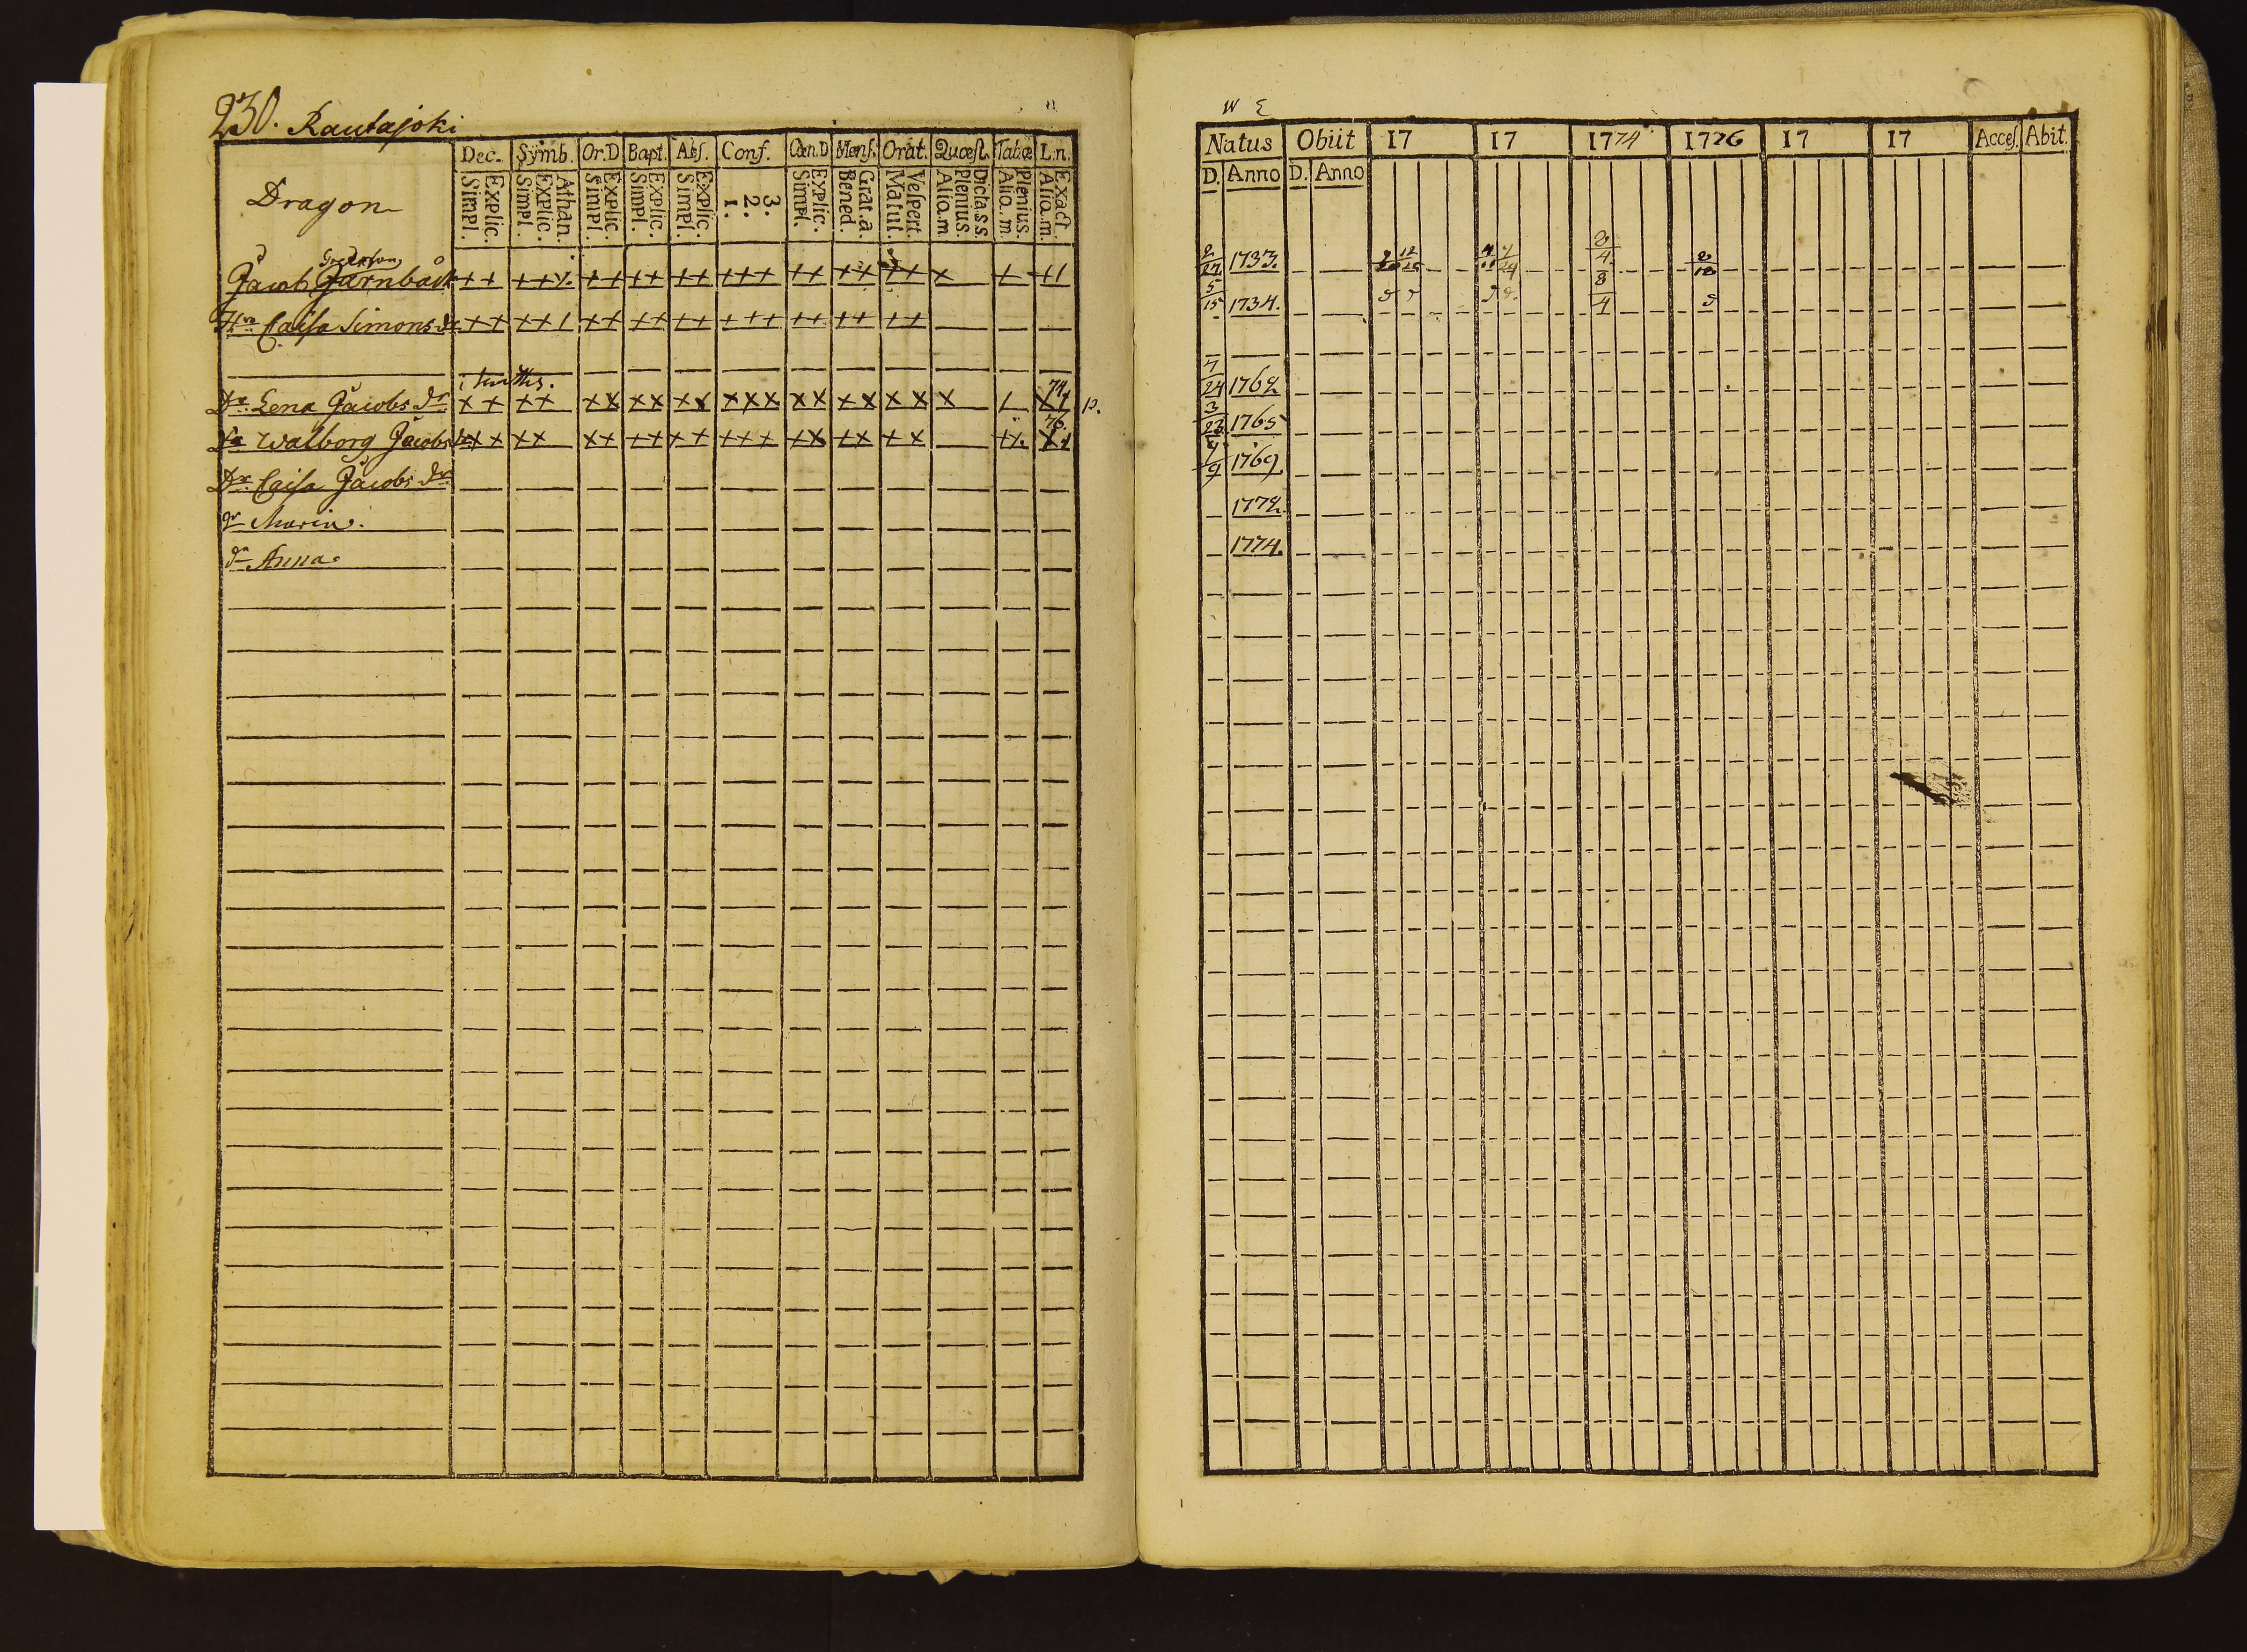 230. Rautajoki
Dec. Symb. Or.D Bapt. Abs. Conf. Cœn.D Mens. Orat. Quæst. Tab.œ L.n.
Simpl. Explic. Simpl. Explic. Athan. Simpl. Explic. Simpl. Explic. Simpl. Explic. 1. 2. 3. Simpl. Explic. Bened. Grat.a. Matut. Vespert. Alio.m Plenius. Dicta.s.s. Alio.m. Plenius. Alio.m. Exact.
Dragon
Jacob Järnbäck ++ ++ ++ ++ ++ +++ ++ ++ ++ +
H:n Caisa Simons dr ++ ++ ++ ++ ++ +++ ++ ++ ++
Dr. Lena Jacobs dr ×× ×× ×× ×× ×× ××× ×× ×× ×× × 74
Dr Walborg Jacobs dr ×× ×× ×× ++ ++ +++ ×× ×× ×+ 76.
Dr. Caisa Jacobs dr
dr Maria.
dr Anna.
Natus Obiit 17 17 1774 1776 17 17 Acces. Abit.
D. Anno D. Anno
2/27 1733.
5/15 1734.
4/24 1762.
3/23 1765
1769
1772.
1774.